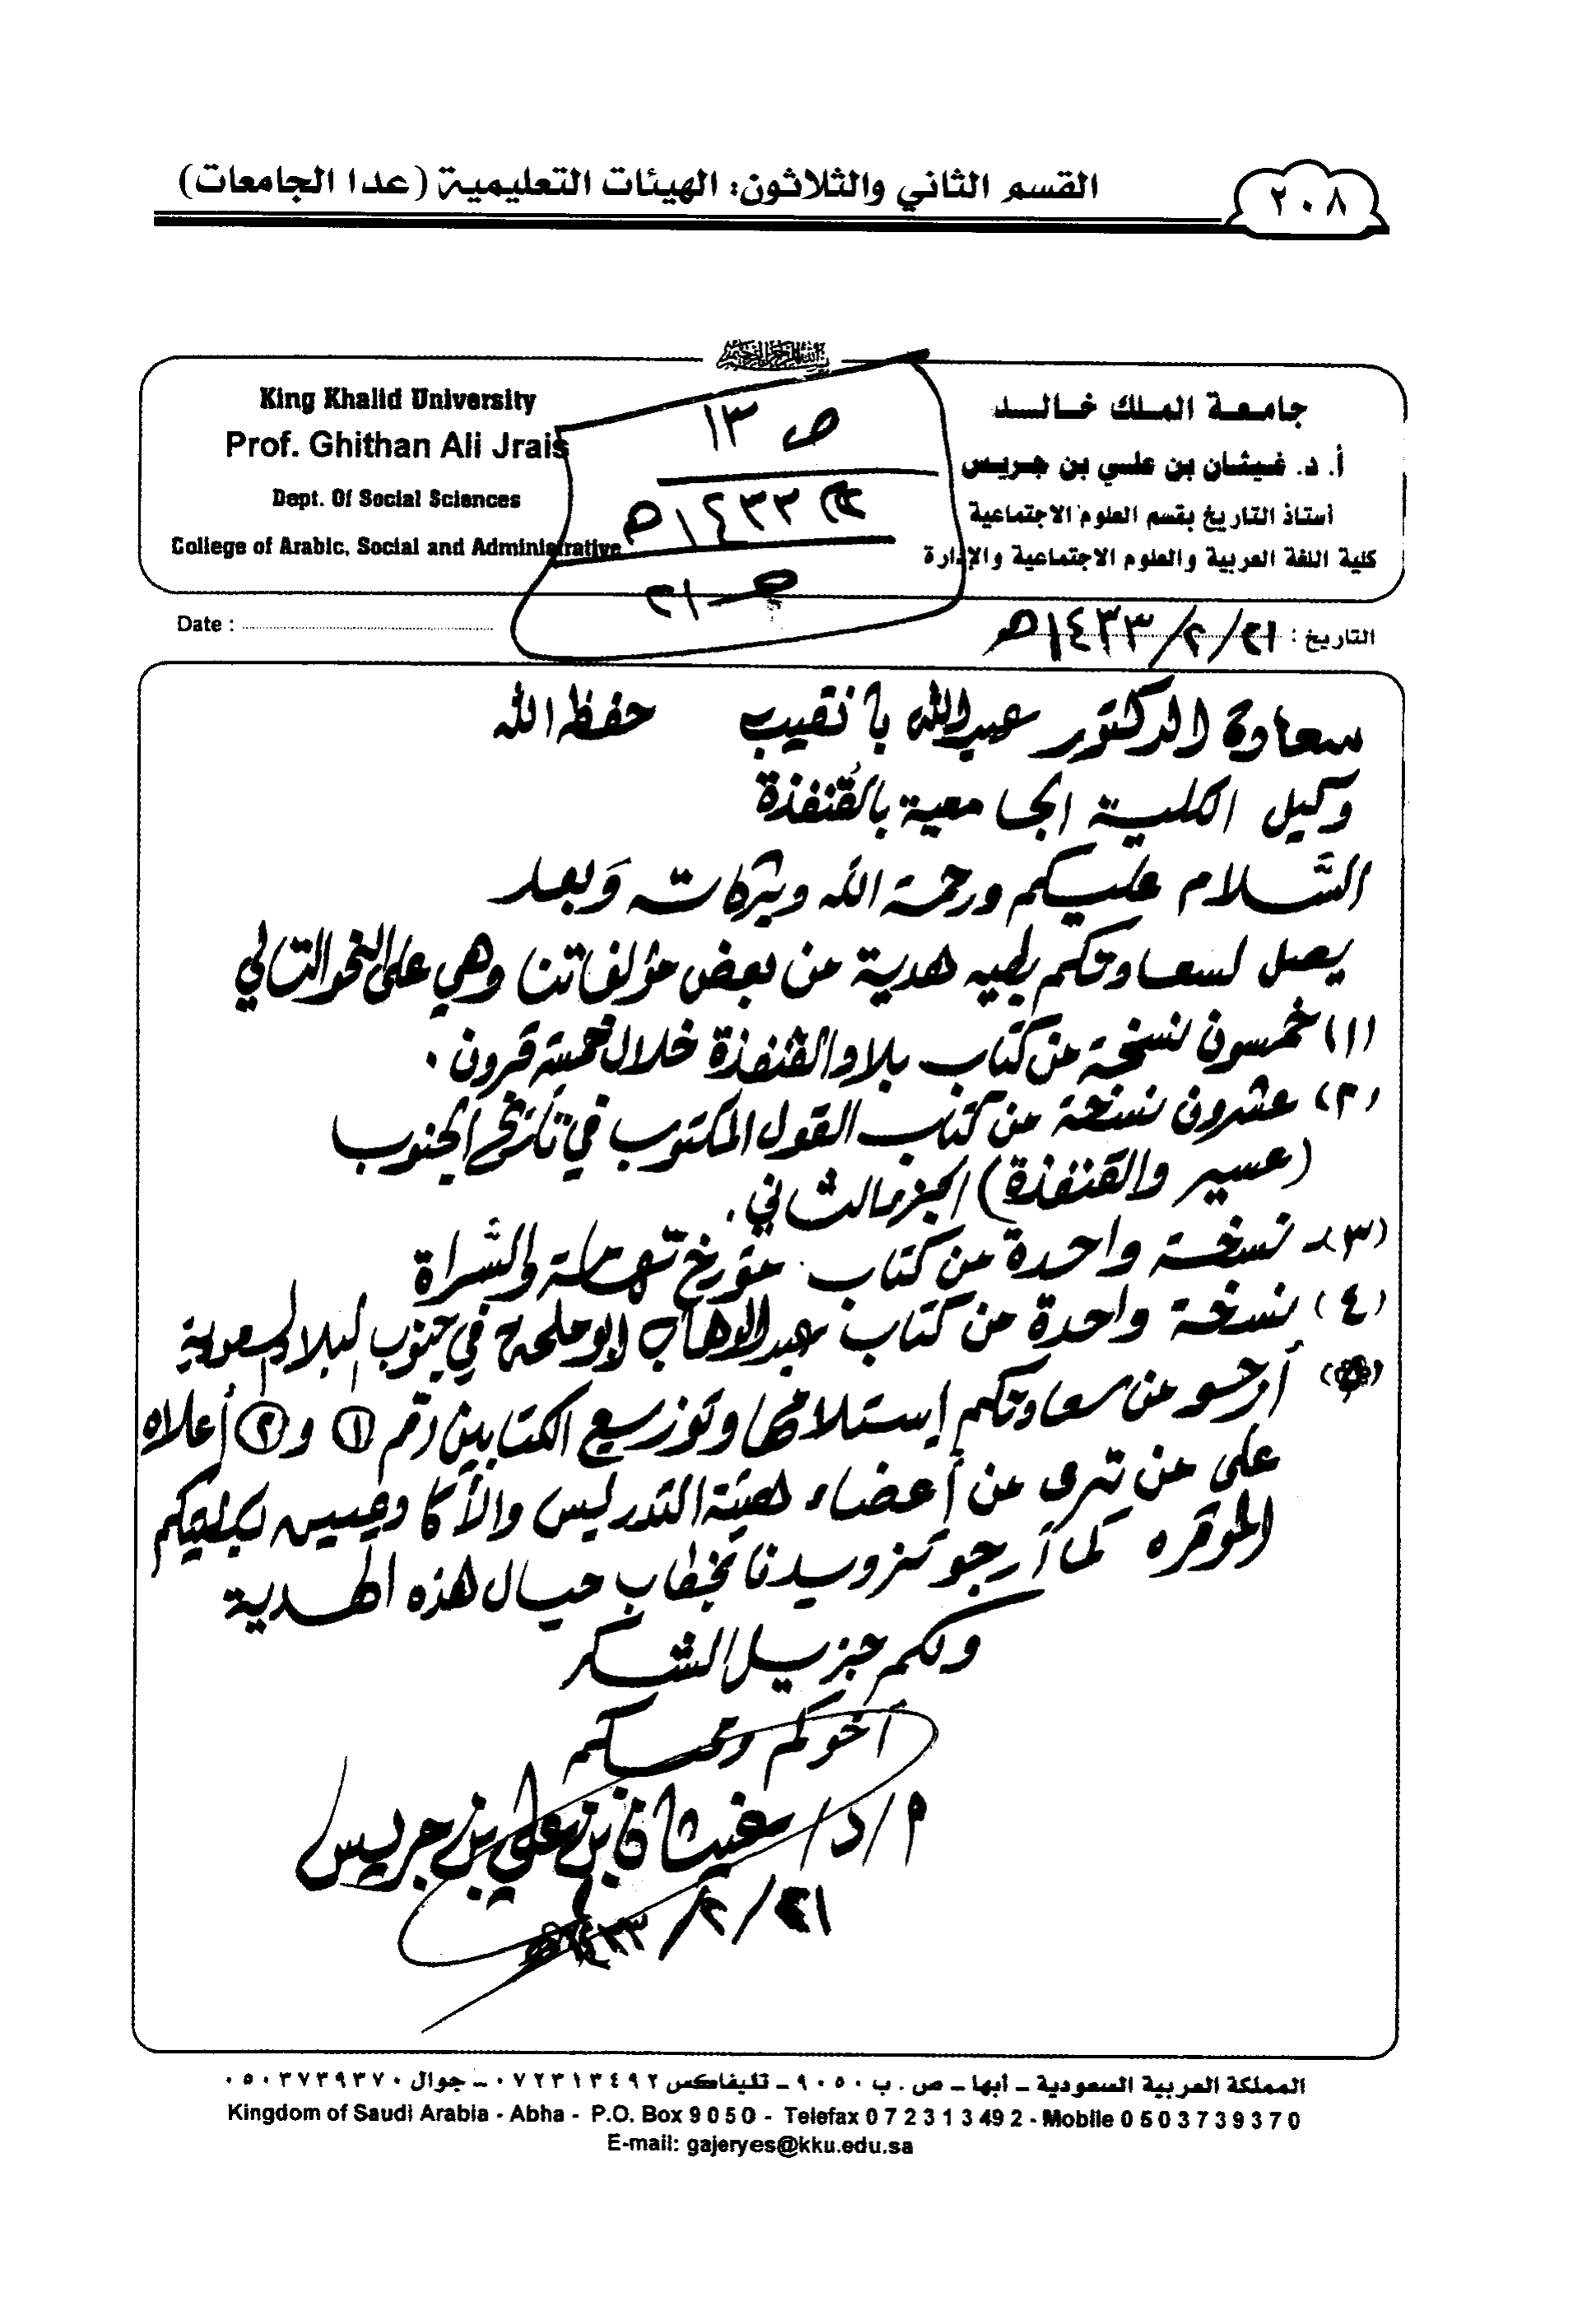 ٢٠٨
القسم الثاني والثلاثون: الهيئات التعليمية (عدا الجامعات)
جامعة الملك خالد
أ. د. غيثان بن علي بن جريس
أستاذ التاريخ بقسم العلوم الاجتماعية
كلية اللغة العربية والعلوم الاجتماعية والإدارة
King Khalid University
Prof. Ghithan Ali Jrais
Dept. Of Social Sciences
College of Arabic, Social and Administrative
ص ١٣
١٤٣٣هـ
التاريخ : ٢١/٢/١٤٣٣هـ
Date :
سعادة الدكتور عبدالله بانقيب حفظه الله
وكيل الكلية الجامعية بالقنفذة
السَّلام عليكم ورحمة الله وبركاته وبعد
يصل لسعادتكم بطيه هدية من بعض مؤلفاتنا وهي على النحو التالي
(١) خمسون نسخة من كتاب بلاد القنفذة خلال خمسة قرون .
(٢) عشرون نسخة من كتاب القول المكتوب في تاريخ الجنوب
(عسير والقنفذة) الجزء الثاني .
(٣) نسخة واحدة من كتاب مؤرخ تهامة والسَّراة
(٤) نسخة واحدة من كتاب عبدالوهاب أبو ملحة في جنوب البلاد السعودية
أرجو من سعادتكم إستلامها وتوزيع الكتابين رقم ١ و ٢ أعلاه
على من ترى من أعضاء هيئة التدريس والأكاديميين بكليتكم
الموقره كما أرجو تزويدنا بخطاب حيال هذه الهدية
ولكم جزيل الشكر
أخوكم ومحبكم
أ/د/ غيثان بن علي بن جريس
٢١/٢/١٤٣٣هـ
المملكة العربية السعودية - أبها - ص . ب ٩٠٥٠ - تليفاكس ٠٧٢٣١٣٤٩٢ - جوال ٠٥٠٣٧٣٩٣٧٠
Kingdom of Saudi Arabia - Abha - P.O. Box 9 0 5 0 - Telefax 0 7 2 3 1 3 4 9 2 - Mobile 0 5 0 3 7 3 9 3 7 0
E-mail: gajeryes@kku.edu.sa